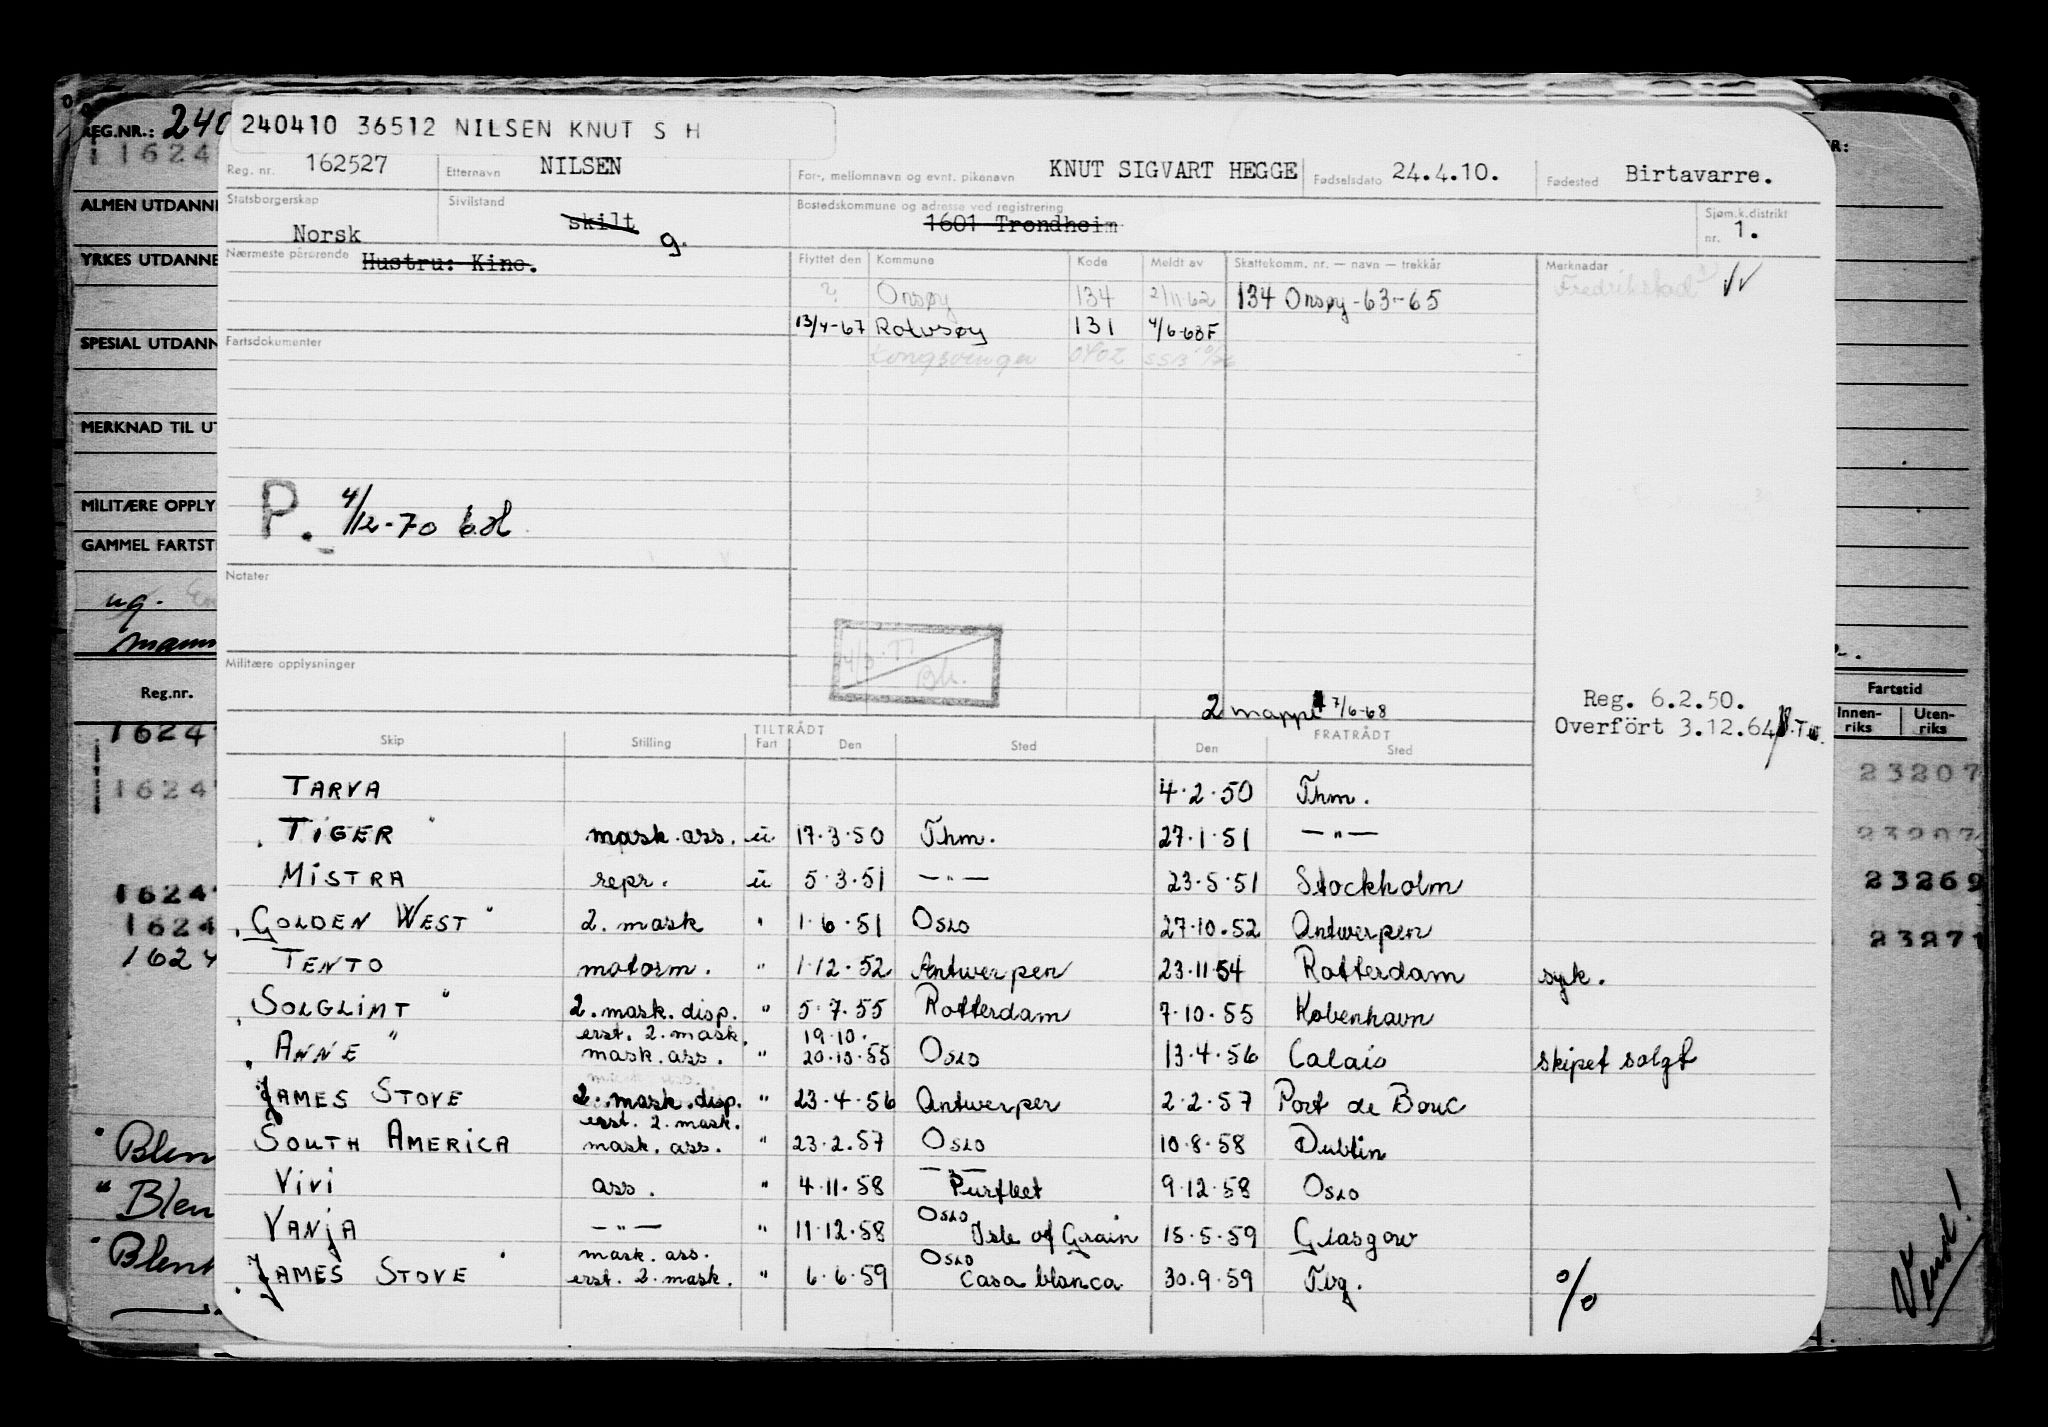 REG.NR.: 240
240410 36512 NILSEN KNUT S H
11624
Reg. nr. 162527 Etternavn NILSEN For-, mellomnavn og evnt. pikenavn KNUT SIGVART HEGGE Fødselsdato 24.4.10. Fødested Birtavarre.
ALMEN UTDANNE
Statsborgerskap Norsk Sivilstand skilt g. Bostedskommune og adresse ved registrering 1601 Trondheim Sjøm.k.distrikt nr. 1.
YRKES UTDANNE
Nærmeste pårørende Hustru: Kine. Flyttet den Kommune Kode Meldt av Skattekomm. nr. — navn — trekkår Merknader
? Onsøy 134 2/11-62 134 Onsøy -63-65 Fredrikstad
13/4-67 Rolvsøy 131 4/6-68F
SPESIAL UTDANN
Fartsdokumenter Kongsvinger 0402 SSB
MERKNAD TIL UT
MILITÆRE OPPLY
P. 4/12-70
GAMMEL FARTST
Notater
ug.
mann
Militære opplysninger
Reg.nr.
2 mappe 7/6-68
Reg. 6.2.50.
Overfört 3.12.64
Fartstid
Innen-riks Uten-riks
TILTRÅDT FRATRÅDT
Skip Stilling Fart Den Sted Den Sted
TARVA 4.2.50 Thm.
TIGER " mask.ass. u 17.3.50 Thm. 27.1.51 — " —
MISTRA repr. u 5.3.51 — " — 23.5.51 Stockholm
GOLDEN WEST " 2. mask " 1.6.51 Oslo 27.10.52 Antwerpen
TENTO motorm. " 1.12.52 Antwerpen 23.11.54 Rotterdam syk.
SOLGLIMT " 2. mask. disp. " 5.7.55 Rotterdam 7.10.55 København
erst. 2. mask. 19.10.
ANNE " mask. ass. " 20.10.55 Oslo 13.4.56 Calais skipet solgt
JAMES STOVE 2. mask. disp. " 23.4.56 Antwerpen 2.2.57 Port de Bouc
erst. 2. mask.
SOUTH AMERICA mask. ass. " 23.2.57 Oslo 10.8.58 Dublin
— " —
VIVI ass. " 4.11.58 Purfleet 9.12.58 Oslo
Oslo
VANJA — " — " 11.12.58 Isle of Grain 15.5.59 Glasgow
mask. ass. Oslo
JAMES STOVE " erst. 2. mask. " 6.6.59 Casablanca 30.9.59 Tbg. %
1624
1624
1624
1624
1624
23207
23207
23269
23271
" Blen
" Blen
" Blenh
Vend!